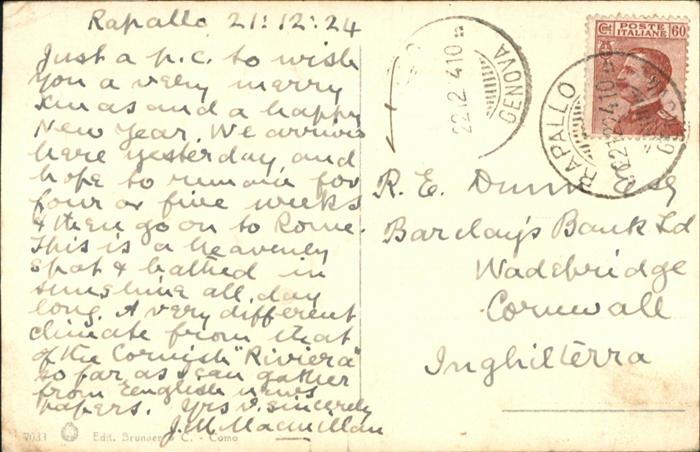 Rapallo 21:12:24
Just a p.c. to wish
you a very merry
Xmas and a happy
New Year. We arrived
here yesterday and
hope to remain for
four or five weeks
& then go on to Rome.
This is a heavenly
spot & bathed in
sunshine all day
long. A very different
climate from that
of the Cornish "Riviera"
so far as I can gather
from English news
papers. Yrs v. sincerely
J.M. Macmillan
7033 Edit. Brunner & C. - Como
22.12.24 10
GENOVA
POSTE
ITALIANE
Cent 60
RAPALLO
R. E. Dunn Esq
Barclay's Bank Ld
Wadebridge
Cornwall
Inghilterra